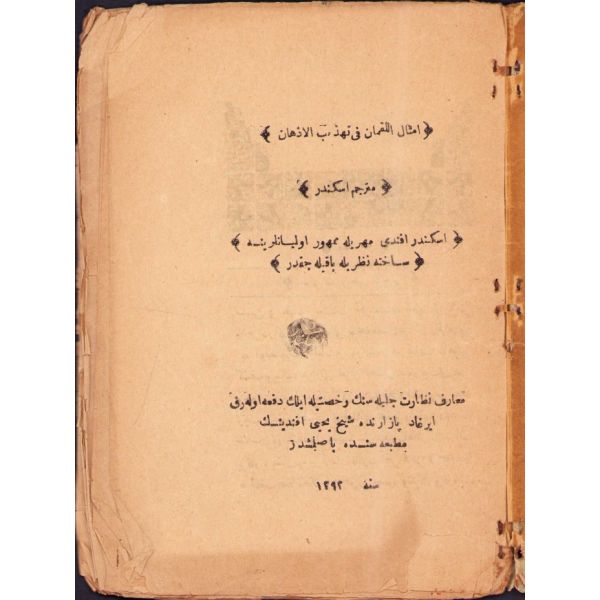 ﴿ امثال اللقمان فى تهذيب الاذهان ﴾
﴿ مترجم اسكندر ﴾
﴿ اسكندر افندى مهريله ممهور اوليانلرينه ﴾
﴿ ساخته نظريله باقيله جقدر ﴾
معارف نظارت جليله سنك رخصتيله ايلك دفعه اوله رق
ايرغاد پازارنده شيخ يحيى افندينك
مطبعه سنده باصلمشدر
سنه ١٢٩٢